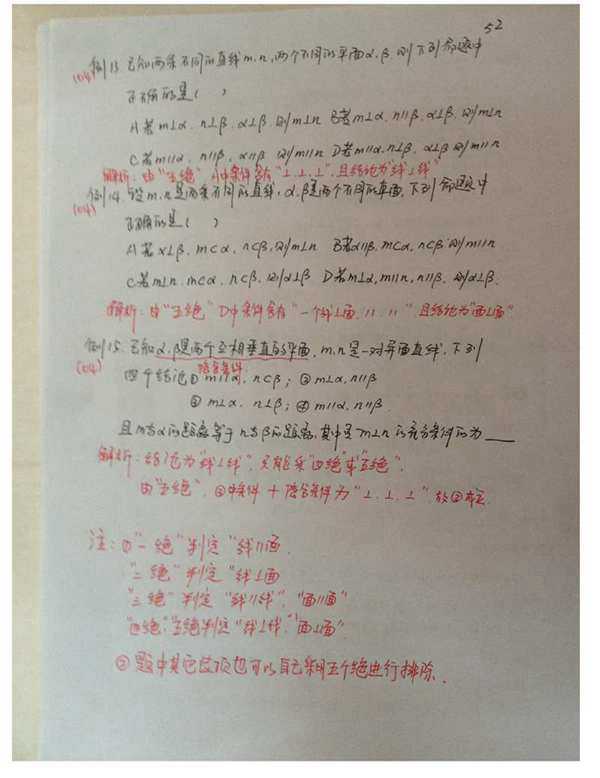 52
例13. 已知两条不同的直线m.n,两个不同的平面α.β,则下列命题中
(04)
正确的是( )
A若m⊥α. n⊥β. α⊥β, 则m⊥n B若m⊥α, n∥β. α⊥β, 则m⊥n
C若m∥α. n∥β, α∥β 则m∥n D若m∥α.n⊥β, α⊥β 则m∥n
解析:由"五绝" A中条件含有"⊥.⊥.⊥",且结论为"线⊥线"
例14. 设m.n是两条不同的直线, α.β是两个不同的平面,下列命题中
(04)
正确的是( )
A若α⊥β. m⊂α, n⊂β,则m⊥n B若α∥β, m⊂α, n⊂β 则m∥n
C若m⊥n. m⊂α, n⊂β, 则α⊥β D若m⊥α,m∥n, n∥β. 则α⊥β.
解析:由"五绝" D中条件含有"一个线⊥面.∥.∥",且结论为"面⊥面"
例15. 已知α.β是两个互相垂直的平面, m.n是一对异面直线,下列
(04)
隐含条件
四个结论①m∥α, n⊂β; ②m⊥α, n∥β
③m⊥α. n⊥β; ④m∥α. n∥β
且m与α的距离等于n与β的距离,其中是m⊥n的充分条件的为
解析:结论为"线⊥线",只能采"四绝"或"五绝".
由"五绝", ③中条件+隐含条件为"⊥.⊥.⊥".故③
注:①"一绝"判定"线∥面.
"二绝"判定"线⊥面
"三绝"判定"线∥线","面∥面"
"四绝""五绝判定"线⊥线""面⊥面"
②题中其它选项也可以自己采用五个绝进行排除.